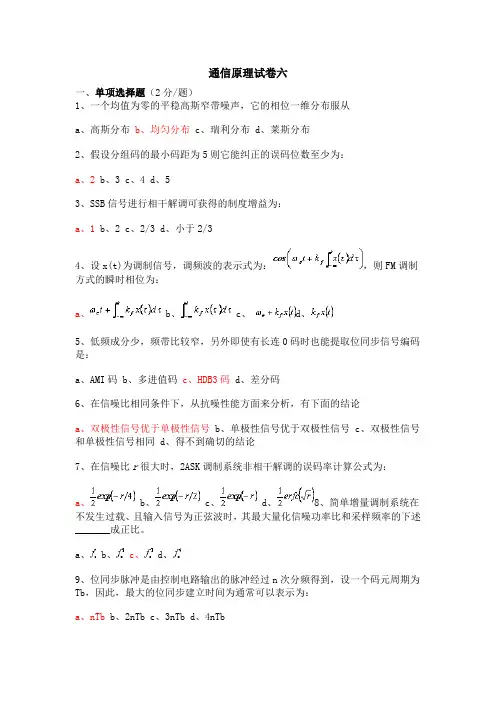 通信原理试卷六
一、单项选择题（2分/题）
1、一个均值为零的平稳高斯窄带噪声，它的相位一维分布服从
a、高斯分布 b、均匀分布 c、瑞利分布 d、莱斯分布
2、假设分组码的最小码距为5则它能纠正的误码位数至少为：
a、2 b、3 c、4 d、5
3、SSB信号进行相干解调可获得的制度增益为：
a、1 b、2 c、2/3 d、小于2/3
4、设x(t)为调制信号，调频波的表示式为：，则FM调制
方式的瞬时相位为：
a、 b、 c、 d、
5、低频成分少，频带比较窄，另外即使有长连0码时也能提取位同步信号编码
是：
a、AMI码 b、多进值码 c、HDB3码 d、差分码
6、在信噪比相同条件下，从抗噪性能方面来分析，有下面的结论
a、双极性信号优于单极性信号 b、单极性信号优于双极性信号 c、双极性信号
和单极性信号相同 d、得不到确切的结论
7、在信噪比r很大时，2ASK调制系统非相干解调的误码率计算公式为：
a、 b、 c、 d、8、简单增量调制系统在
不发生过载、且输入信号为正弦波时，其最大量化信噪功率比和采样频率的下述
_______成正比。
a、 b、 c、 d、
9、位同步脉冲是由控制电路输出的脉冲经过n次分频得到，设一个码元周期为
Tb，因此，最大的位同步建立时间为通常可以表示为：
a、nTb b、2nTb c、3nTb d、4nTb